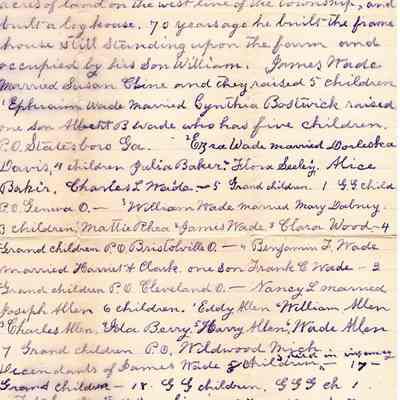 acres of land on the west line of the township, and
built a log house. 70 years ago he built the frame
house still standing upon the farm and
occupied by his son William. James Wade
Married Susan Cline and they raised 5 children
'Ephraim Wade Married Cynthia Bostwick raised
one son Albert B Wade who has five children.
P.O. Statesboro Ga. ²Ezra Wade married Dorleska
Davis, 4 children Julia Baker. Flora Seeley. Alice
Baker. Charles L Wade. – 5 Grand children. 1 G G child
P.O. Geneva O. – ³William Wade married Mary Dabney.
3 children, Mattie Rhea James Wade. Clara Wood – 4
Grand children P.O Bristolville O. – ⁴Benjamin F. Wade
married Harriet A. Clark. one son Frank C Wade – 3
Grand children P.O. Cleveland O. – Nancy L married
Joseph Allen 6 children. Eddy Allen William Allen
Charles Allen, Ida Berry. Harry Allen, Wade Allen
7 Grand children P.O. Wildwood Mich
Decendants of James Wade 8 children, 3 died in infancy – 17 –
Grand children – 18. G G children. G G G ch 1.